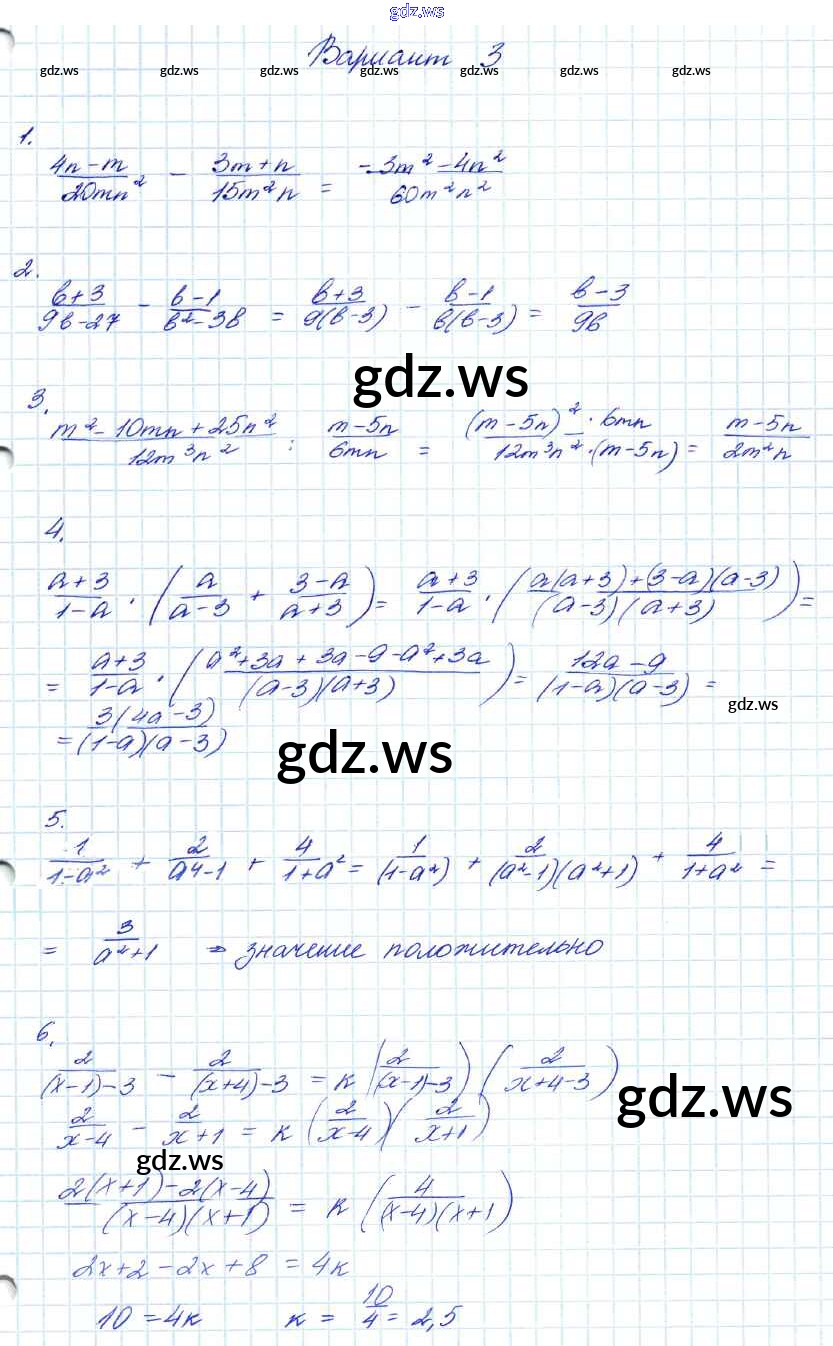 gdz.ws
Вариант 3
gdz.ws gdz.ws gdz.ws gdz.ws gdz.ws gdz.ws gdz.ws
1.
(4n-m)/(20mn²) - (3m+n)/(15m²n) = (-3m²-4n²)/(60m²n²)
2.
(b+3)/(9b-27) - (b-1)/(b²-3b) = (b+3)/(9(b-3)) - (b-1)/(b(b-3)) = (b-3)/(9b)
gdz.ws
3.
(m²-10mn+25n²)/(12m³n²) : (m-5n)/(6mn) = ((m-5n)²·6mn)/(12m³n²·(m-5n)) = (m-5n)/(2m²n)
4.
(a+3)/(1-a) · (a/(a-3) + (3-a)/(a+3)) = (a+3)/(1-a) · ((a(a+3)+(3-a)(a-3))/((a-3)(a+3))) =
= (a+3)/(1-a) · ((a²+3a+3a-9-a²+3a)/((a-3)(a+3))) = (12a-9)/((1-a)(a-3)) =
gdz.ws
= (3(4a-3))/((1-a)(a-3))
gdz.ws
5.
1/(1-a²) + 2/(a⁴-1) + 4/(1+a²) = 1/(1-a²) + 2/((a²-1)(a²+1)) + 4/(1+a²) =
= 3/(a²+1) ⇒ значение положительно
6.
2/((x-1)-3) - 2/((x+4)-3) = k (2/((x-1)-3)) (2/(x+4-3))
gdz.ws
2/(x-4) - 2/(x+1) = k (2/(x-4)) (2/(x+1))
gdz.ws
(2(x+1)-2(x-4))/((x-4)(x+1)) = k (4/((x-4)(x+1)))
2x+2-2x+8 = 4k
10 = 4k k = 10/4 = 2,5